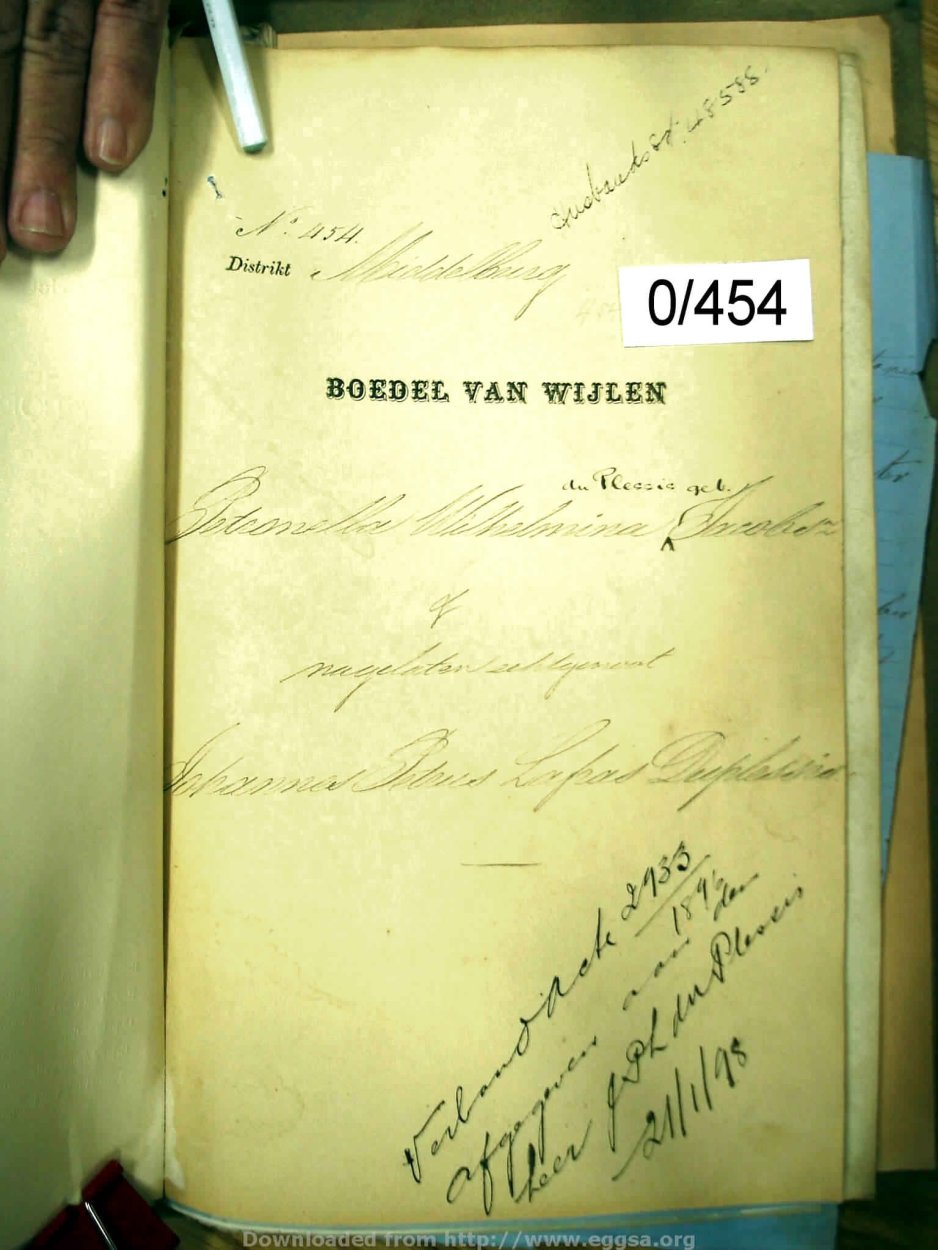 Husbands Est. 48588.
No. 454.
Distrikt Middelburg
0/454
BOEDEL VAN WIJLEN
du Plessis geb.
Petronella Wilhelmina Jacobsz
of
nagelaten echtgenoot
Johannes Petrus Lafras Duplessis
Verband Acte 2933
1896
afgegeven aan den
heer J P L du Plessis
21/1/98
Downloaded from http://www.eggsa.org